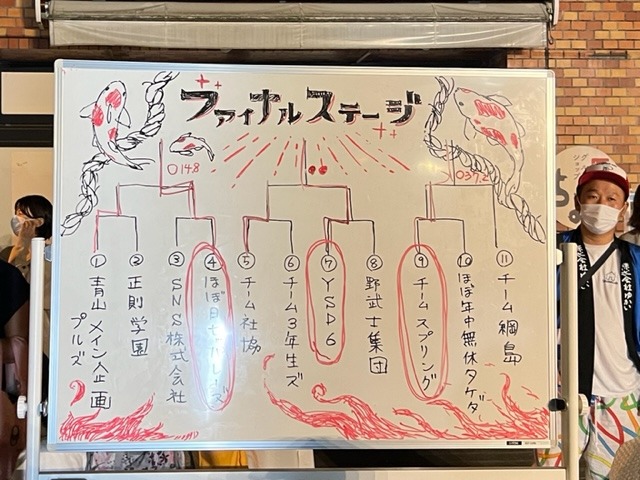 ファイナルステージ
0148
037.2
① 青山メイン企画
プルズ
② 正則学園
③ SNS株式会社
④ ほぼ
⑤ チーム社協
⑥ チーム3年生ズ
⑦ YSD6
⑧ 野武士集団
⑨ チームスプリング
⑩ ほぼ年中無休タゲダ
⑪ チーム綱島